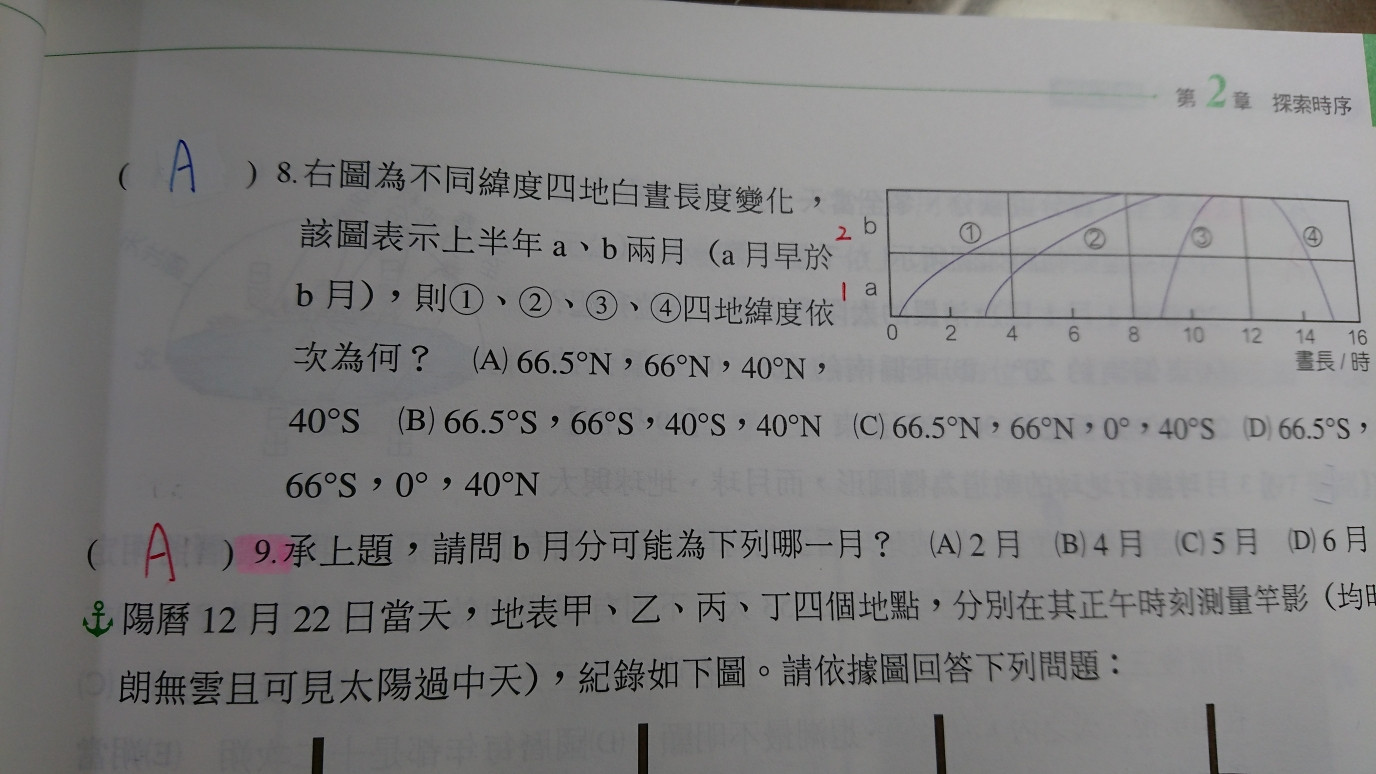 第2章 探索時序
( A ) 8.右圖為不同緯度四地白晝長度變化，
該圖表示上半年 a、b 兩月（a 月早於
b 月），則①、②、③、④四地緯度依
次為何？ (A) 66.5°N，66°N，40°N，
40°S (B) 66.5°S，66°S，40°S，40°N (C) 66.5°N，66°N，0°，40°S (D) 66.5°S，
66°S，0°，40°N
2 b ① ② ③ ④
1 a
0 2 4 6 8 10 12 14 16
晝長 / 時
( A ) 9.承上題，請問 b 月分可能為下列哪一月？ (A) 2 月 (B) 4 月 (C) 5 月 (D) 6 月
陽曆 12 月 22 日當天，地表甲、乙、丙、丁四個地點，分別在其正午時刻測量竿影（均
朗無雲且可見太陽過中天），紀錄如下圖。請依據圖回答下列問題：